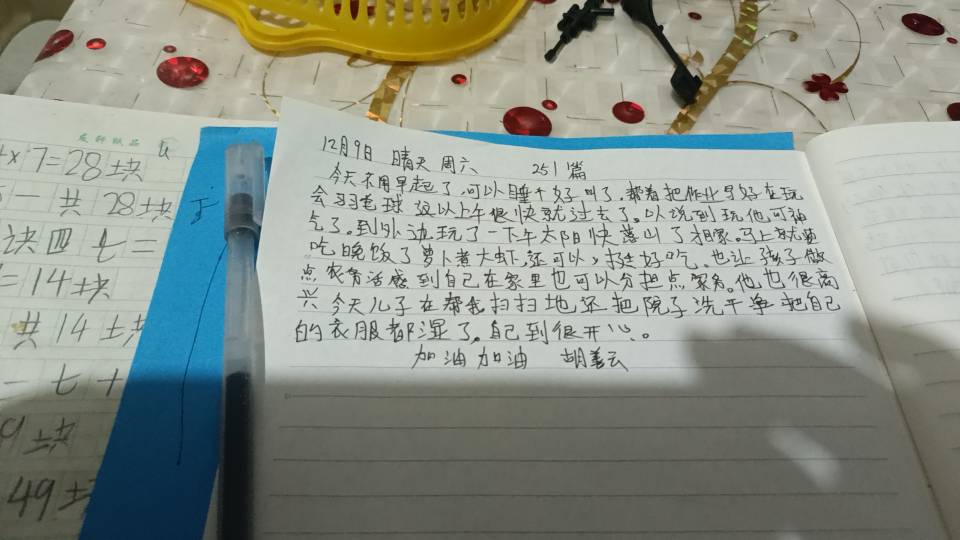 12月9日 晴天 周六 251篇
今天不用早起了,可以睡个好叫了,帮着把作业写好在玩
会羽毛球 这以上午很快就过去了。以说到玩他可神
气了。到外边玩了一下午太阳快落山了才相家。马上就要
吃晚饭了萝卜煮大虾,还可以,挺好吃,也让孩子做
点农务活感到自己在家里也可以分担点家务。他也很高
兴 今天儿子在帮我扫扫地还把院子洗干净把自己
的衣服都湿了。自己到很开心。
加油加油 胡善云
4×7=28块
一共28块
块四七=
=14块
共14块
一七十
9块
49块